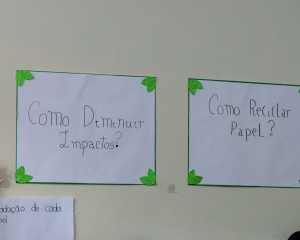 Como Diminuir
Impactos?
Como Reciclar
Papel?
de cada